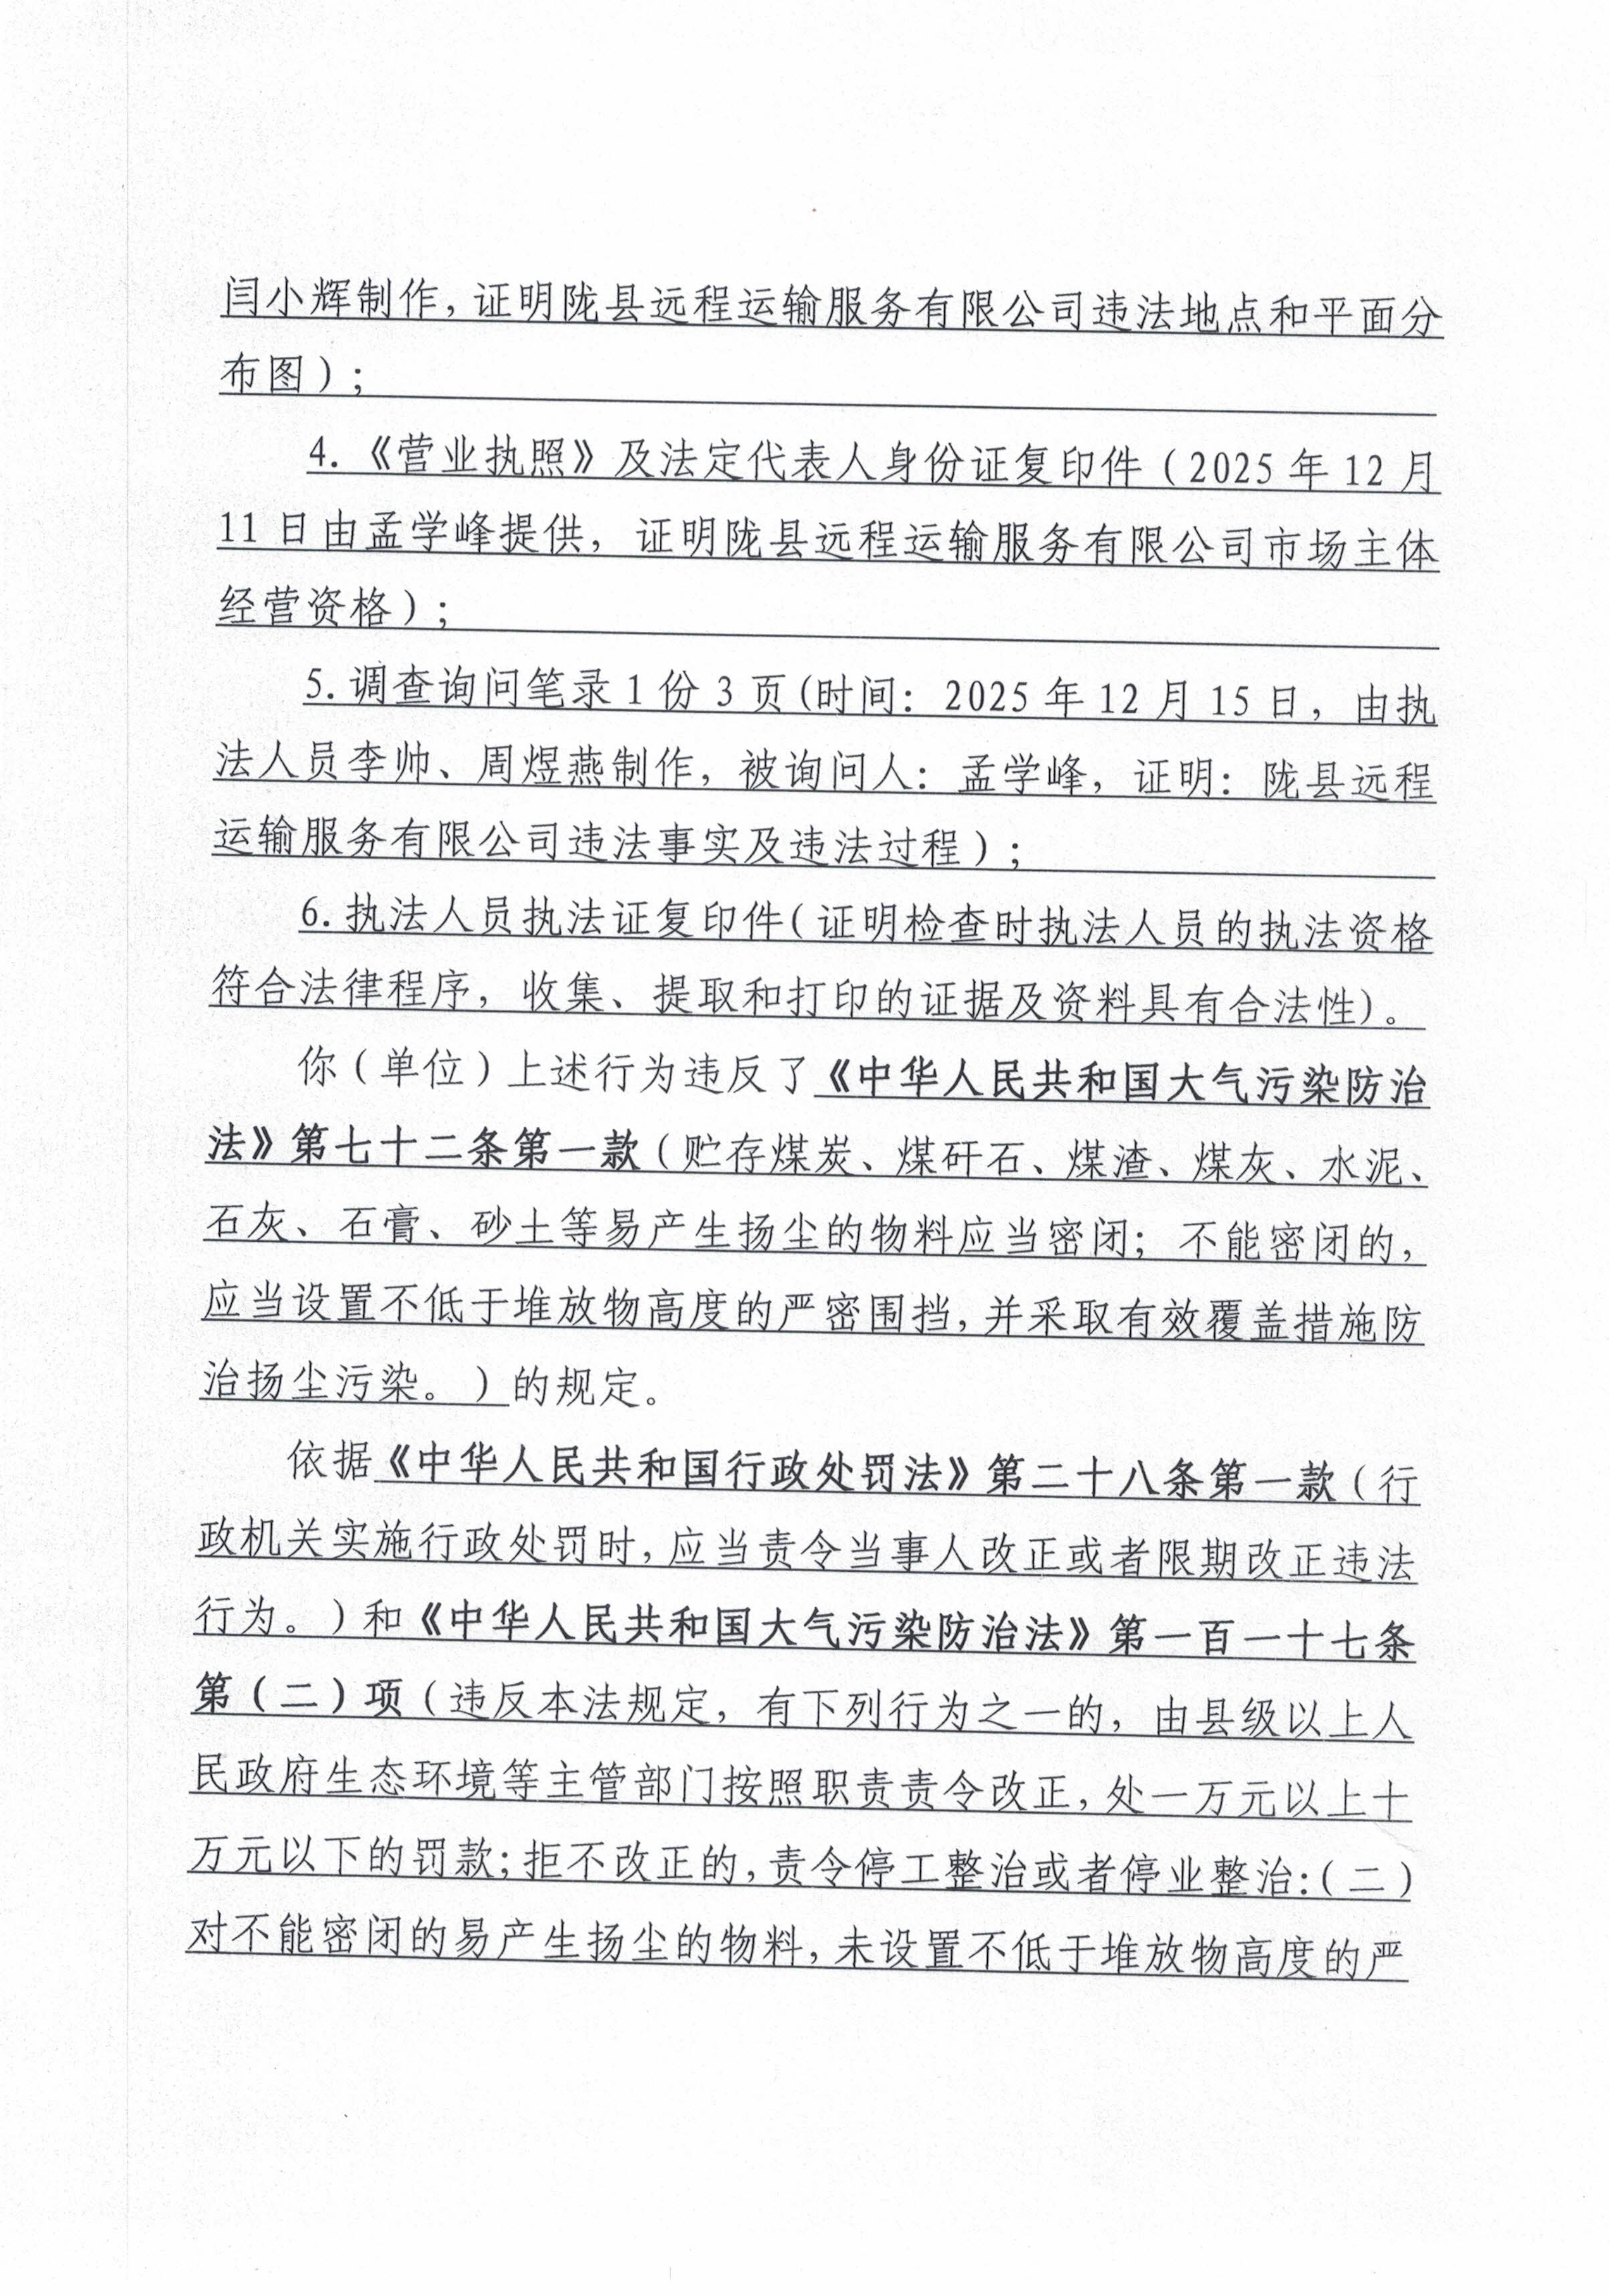 闫小辉制作，证明陇县远程运输服务有限公司违法地点和平面分
布图）；
4.《营业执照》及法定代表人身份证复印件（2025 年 12 月
11 日由孟学峰提供，证明陇县远程运输服务有限公司市场主体
经营资格）；
5.调查询问笔录 1 份 3 页(时间：2025 年 12 月 15 日，由执
法人员李帅、周煜燕制作，被询问人：孟学峰，证明：陇县远程
运输服务有限公司违法事实及违法过程）；
6.执法人员执法证复印件(证明检查时执法人员的执法资格
符合法律程序，收集、提取和打印的证据及资料具有合法性)。
你（单位）上述行为违反了《中华人民共和国大气污染防治
法》第七十二条第一款（贮存煤炭、煤矸石、煤渣、煤灰、水泥、
石灰、石膏、砂土等易产生扬尘的物料应当密闭；不能密闭的，
应当设置不低于堆放物高度的严密围挡，并采取有效覆盖措施防
治扬尘污染。）的规定。
依据《中华人民共和国行政处罚法》第二十八条第一款（行
政机关实施行政处罚时，应当责令当事人改正或者限期改正违法
行为。）和《中华人民共和国大气污染防治法》第一百一十七条
第（二）项（违反本法规定，有下列行为之一的，由县级以上人
民政府生态环境等主管部门按照职责责令改正，处一万元以上十
万元以下的罚款；拒不改正的，责令停工整治或者停业整治：（二）
对不能密闭的易产生扬尘的物料，未设置不低于堆放物高度的严